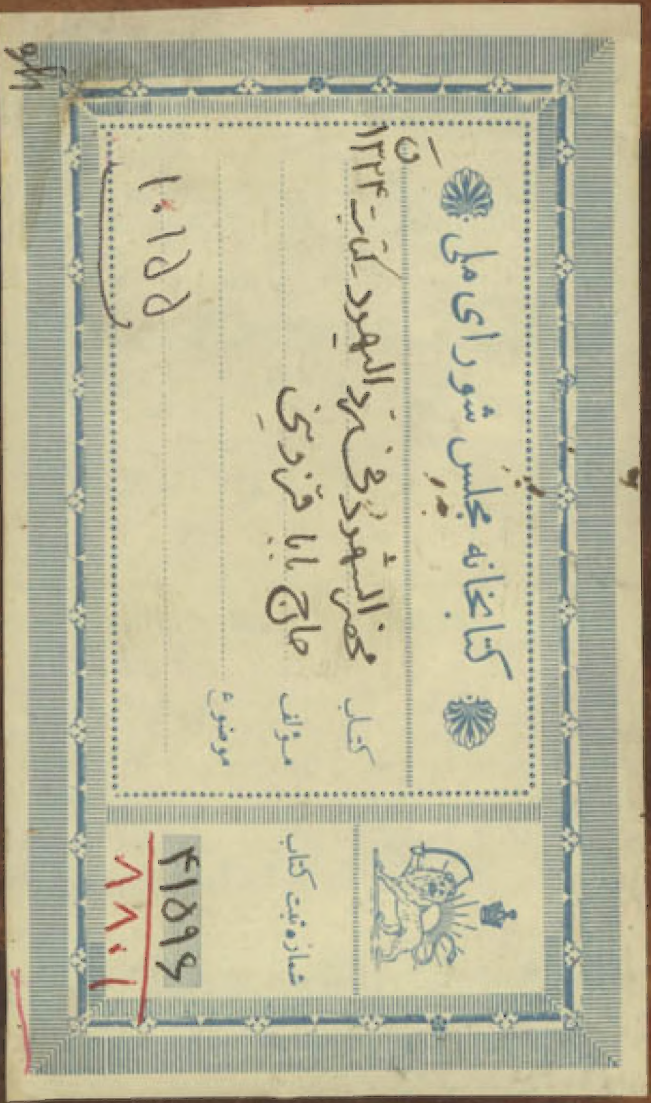 کتابخانه مجلس شورای ملی
کتاب محضر الشهود فی رد الیهود کتابت ۱۳۲۴
مؤلف حاج بابا قزوینی
موضوع
۱۰۱۵۵
شماره ثبت کتاب
۴۱۵۹۶
۸۸۰۱